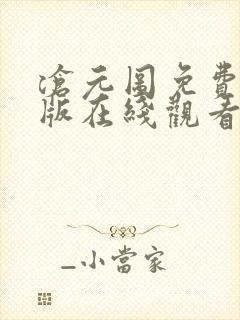 滄元圖免費
版在綫觀看
_小當家